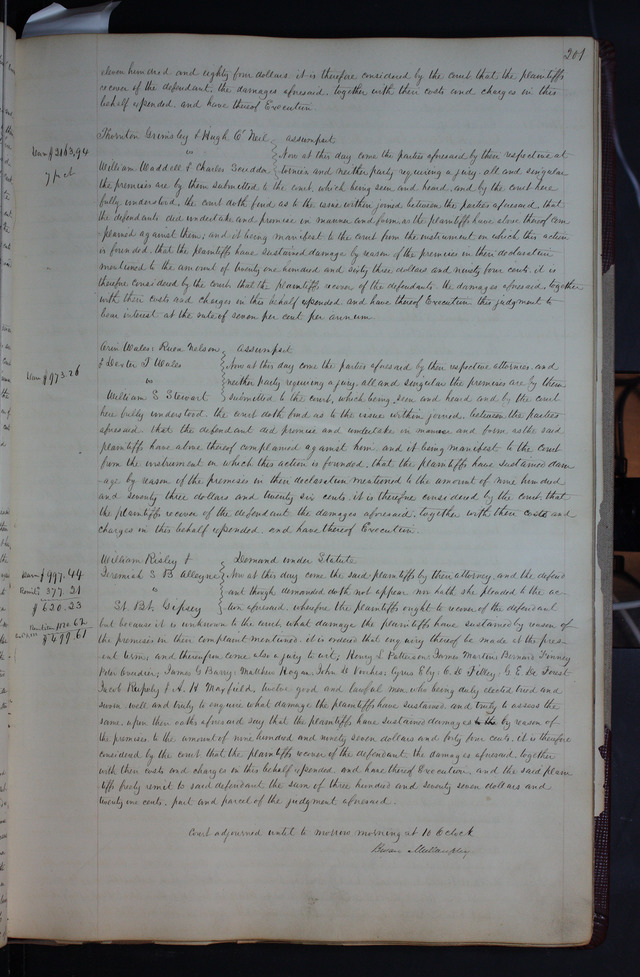 201
eleven hundred and eighty four dollars it is therefore considered by the court that the plaintiffs
recover of the defendant, the damages aforesaid, together with their costs and charges in this
behalf expended, and have thereof Execution
Thornton Grimsley & Hugh O'Neil assumpsit
Dam $2163.94
7 p ct
vs
Now at this day come the parties aforesaid by their respective at
William Waddell & Charles Scudder
tornies and neither party requiring a jury all and singular
the premises are by them submitted to the court, which being seen and heard, and by the court here
fully understood, the court doth find as to the issue within joined between the parties aforesaid, that
the defendants did undertake and promise in manner and form as the plaintiffs have above thereof com
plained against them, and it being manifest to the court from the instrument on which this action
is founded, that the plaintiffs have sustained damage by reason of the premises in their declaration
mentioned to the amount of twenty one hundred and sixty three dollars and ninety four cents, it is
therefore considered by the court that the plaintiffs recover of the defendants the damages aforesaid, together
with their costs and charges in this behalf expended and have thereof Execution this judgment to
bear interest at the rate of seven per cent per annum
Wales Nelson assumpsit
& Dexter T Wales
Now at this day come the parties aforesaid by their respective attornies, and
Dam $973.26
vs
neither party requiring a jury, all and singular the premises are by them
William S Stewart
submitted to the court, which being seen and heard and by the court
here fully understood, the court doth find as to the issue within joined, between the parties
aforesaid that the defendant did promise and undertake in manner and form as the said
plaintiffs have above thereof complained against him and it being manifest to the court
from the instrument on which this action is founded, that the plaintiffs have sustained dam
-age by reason of the premises in their declaration mentioned to the amount of nine hundred
and seventy three dollars and twenty six cents, it is therefore considered by the court that
the plaintiffs recover of the defendant the damages aforesaid, together with their costs and
charges in this behalf expended, and have thereof Execution.
William Risley & Demand under Statute
Dam $997.44
Jeremiah S B Alleyne
Now at this day come the said plaintiffs by their attorney, and the defend
Remit. 377.21
vs
ant though demanded doth not appear nor hath she pleaded to the ac-
$620.23
St. Bt. Gipsey
tion aforesaid. wherefore the plaintiffs ought to recover of the defendant
but because it is unknown to the court, what damage the plaintiffs have sustained by reason of
120.62
$499.61
the premises in their complaint mentioned, it is ordered that enquiry thereof be made at the pres-
ent term, and thereupon come also a jury to wit; Henry L Patterson James Martin Bernard Tenney
Peter James G Barry; Matthew Hogan John Cyrus Ely; O. D Filley; G. E De Forest
Jacob & A. H Mayfield, twelve good and lawful men who being duly elected tried and
sworn well and truly to enquire what damage the plaintiffs have sustained and truly to assess the
same, upon their oaths aforesaid say that the plaintiffs have sustained damages by reason of
the premises to the amount of nine hundred and ninety seven dollars and forty four cents, it is therefore
considered by the court that the plaintiffs recover of the defendant the damages aforesaid, together
with their costs and charges in this behalf expended and have thereof Execution, and the said plain
tiffs freely remit to said defendant the sum of three hundred and seventy seven dollars and
twenty one cents, part and parcel of the judgment aforesaid.
Court adjourned until to morrow morning at 10 O'Clock
Bryan Mullanphy